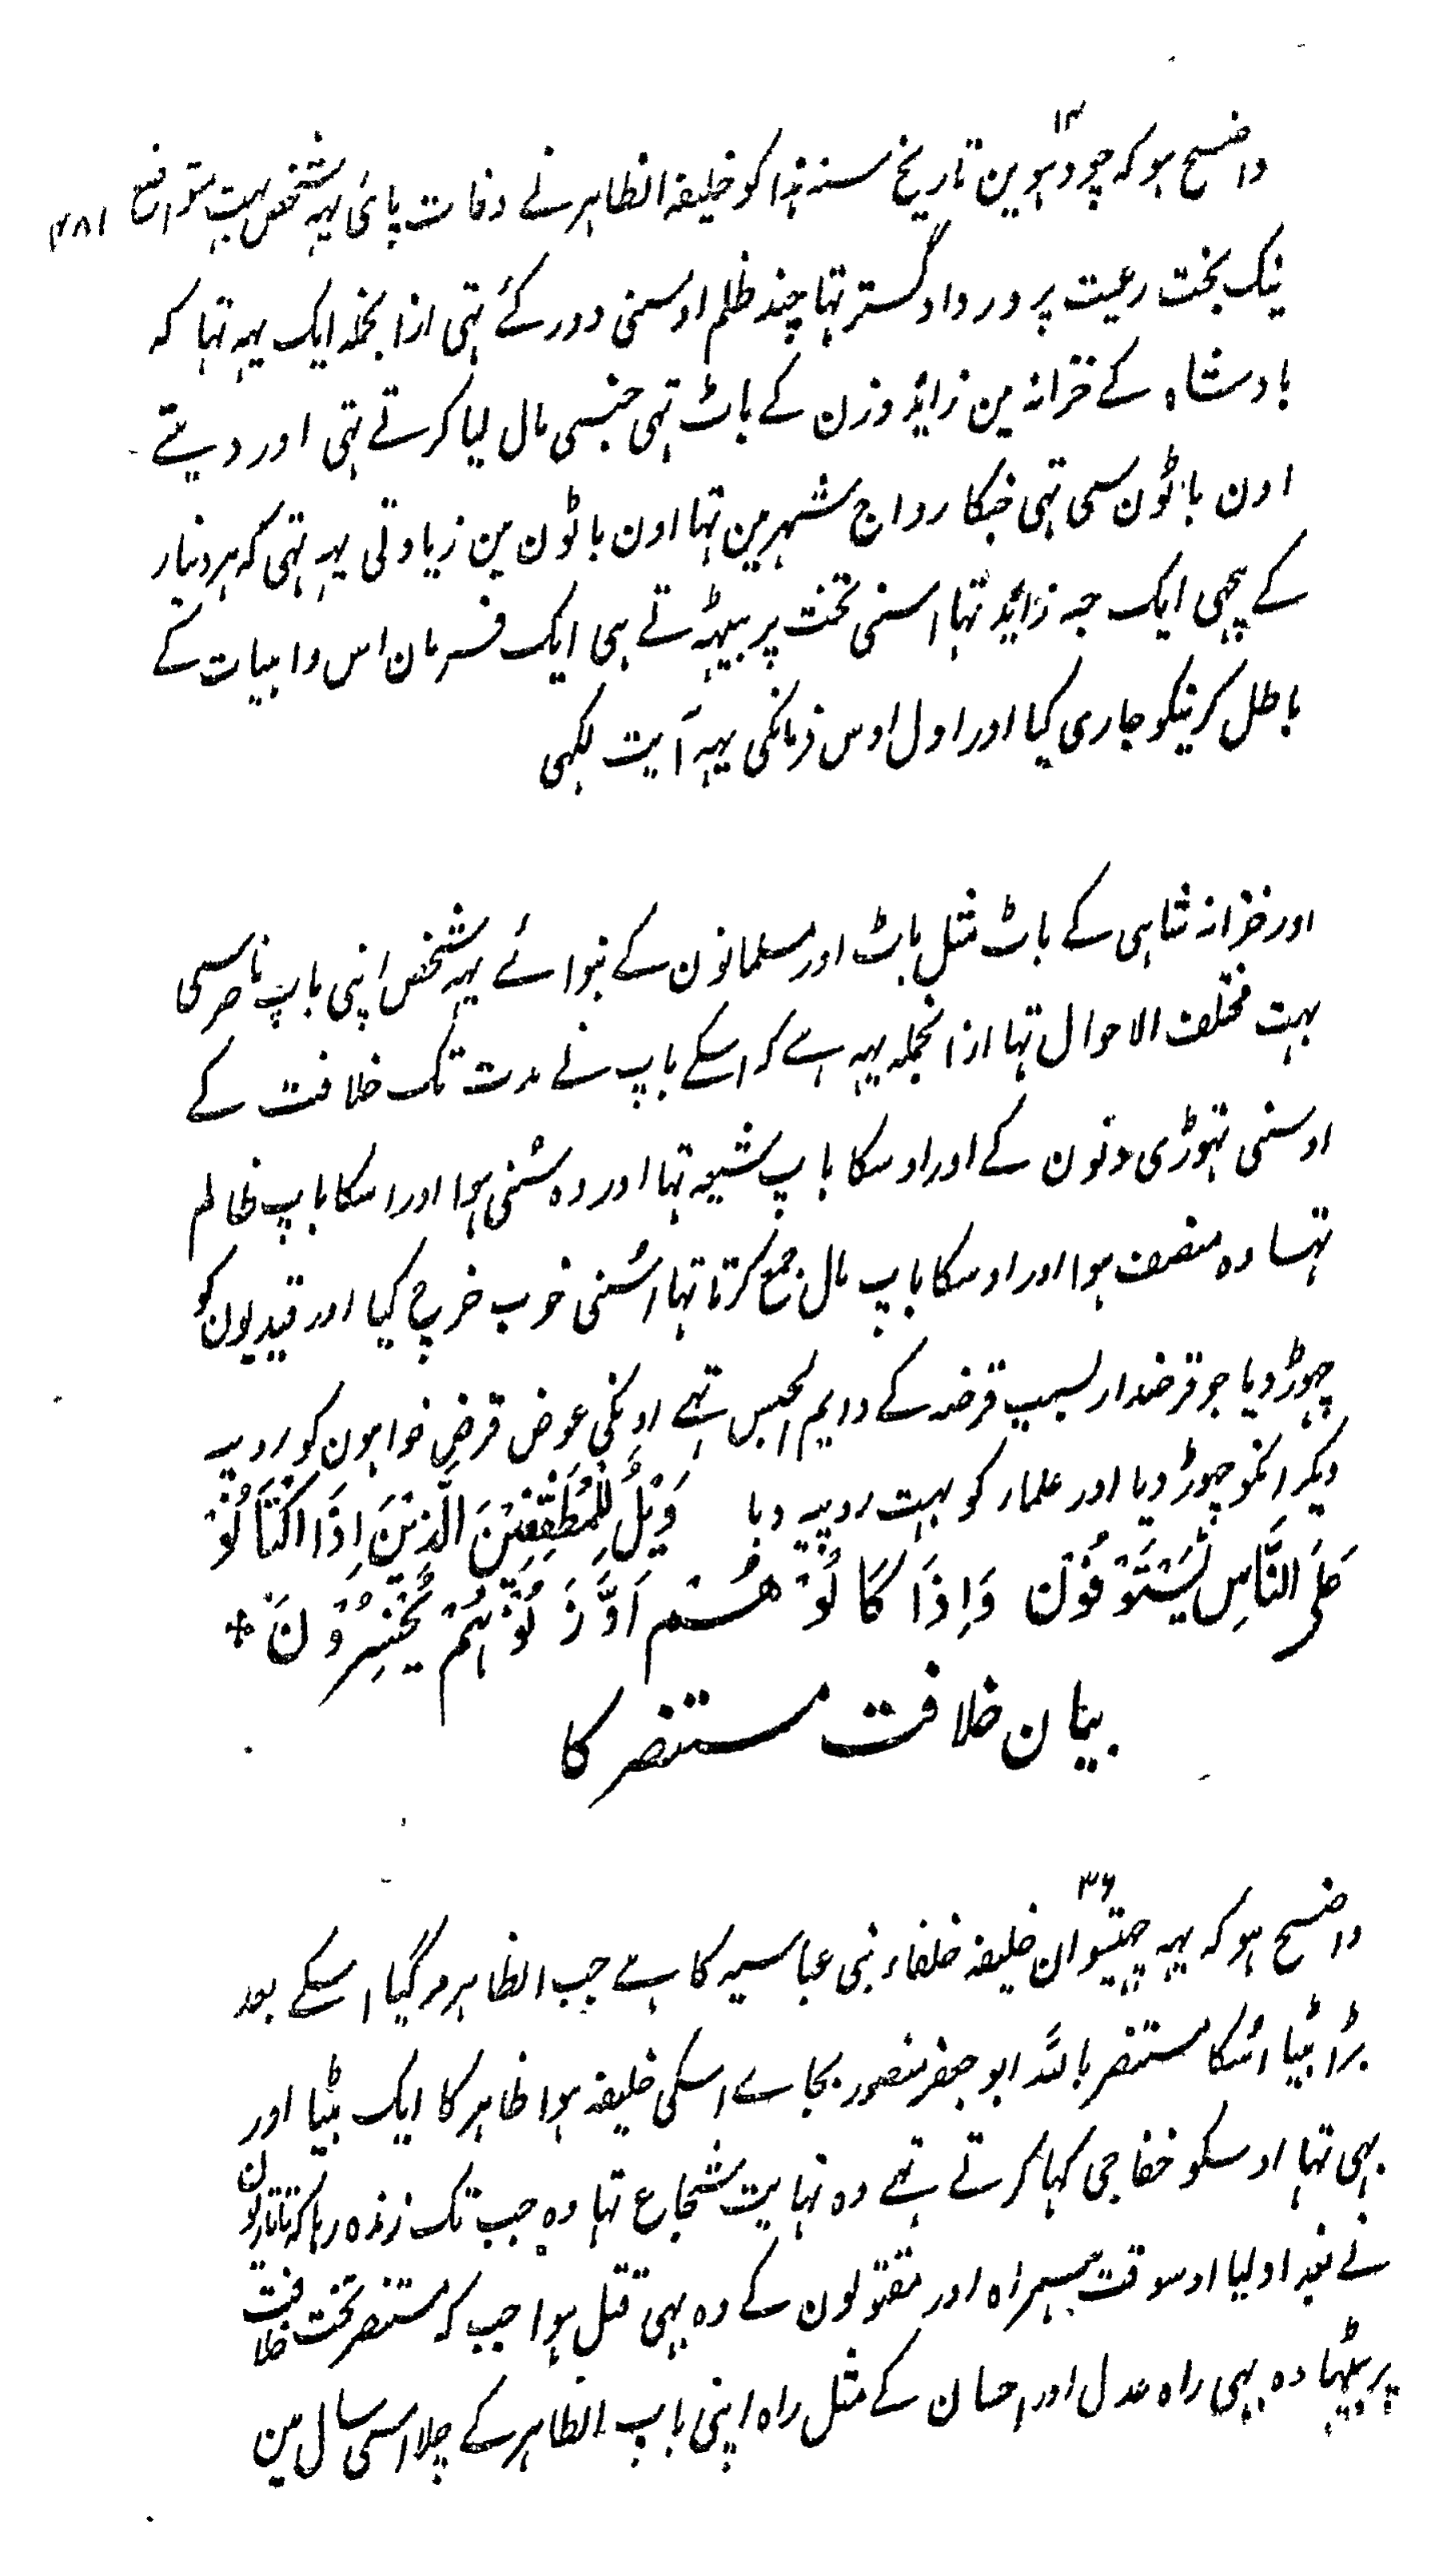 ۱۴
واضح ہو کہ چودہوین تاریخ سنہ ہذا کو خلیفہ الظاہر نے وفات پائی یہہ شخص بہت متواضع ۴۸۱
نیک بخت رعیت پرور دادگستر تہا چند ظلم اوسنی دور کئے تہی ازانجملہ ایک یہہ تہا کہ
بادشاہ کے خزانہ مین زاید وزن کے باٹ تہی جنسی مال لیا کرتے تہی اور دیتے
اون باٹون سی تہی جنکا رواج شہر مین تہا اون باٹون مین زیادتی یہہ تہی کہ ہر دنیار
کے پیچہی ایک حبہ زاید تہا اسنی تخت پر بیٹہتے ہی ایک فرمان اس واہیات کے
باطل کرنیکو جاری کیا اور اول اوس فرمانکی یہہ آیت لکہی
اور خزانہ شاہی کے باٹ مثل باٹ اور مسلمانون کے بنوائے یہہ شخص اپنی باپ ناصر سی
بہت مختلف الاحوال تہا ازانجملہ یہہ ہے کہ اسکے باپ نے مدت تک خلافت کے
اوسنی تہوڑی دنون کے اور اوسکا باپ شیعہ تہا اور وہ سُنی ہوا اور اسکا باپ ظالم
تہا وہ منصف ہوا اور اوسکا باپ مال جمع کرتا تہا اسُنی خوب خرچ کیا اور قیدیون کو
چہوڑ دیا جو قرضدار بسبب قرضہ کے دایم الحبس تہے اونکی عوض قرض خواہون کو روپیہ
دیکر انکو چہوڑ دیا اور علمار کو بہت روپیہ دیا وَیْلٌ لِّلْمُطَفِّفِیْنَ الَّذِیْنَ اِذَا اکْتَالُوْ
عَلَی النَّاسِ یَسْتَوْفُوْن وَاِذَا کَا لُوْ ھُــم اَوَّزَ نُوْہُمْ یُخْسِرُوْنَ *
بیان خلافت مستنصر کا
۳۶
واضح ہو کہ یہہ چہتیسوان خلیفہ خلفاء بنی عباسیہ کا ہے جب الظاہر مرگیا اسکے بعد
بڑا بیٹا اسُکا مستنصر باللہ ابو جعفر منصور بجاے اسکی خلیفہ ہوا ظاہر کا ایک بیٹا اور
بہی تہا اوسکو خفاجی کہا کرتے تہے وہ نہایت شجاع تہا وہ جب تک زندہ رہا کہ تاتاریون
نے بغداد لیا اوسوقت ہمراہ اور مقتولون کے وہ بہی قتل ہوا جب کہ مستنصر تخت خلافت
پر بیٹہا وہ بہی راہ عدل اور احسان کے مثل راہ اپنی باپ الظاہر کے چلا اسی سال مین